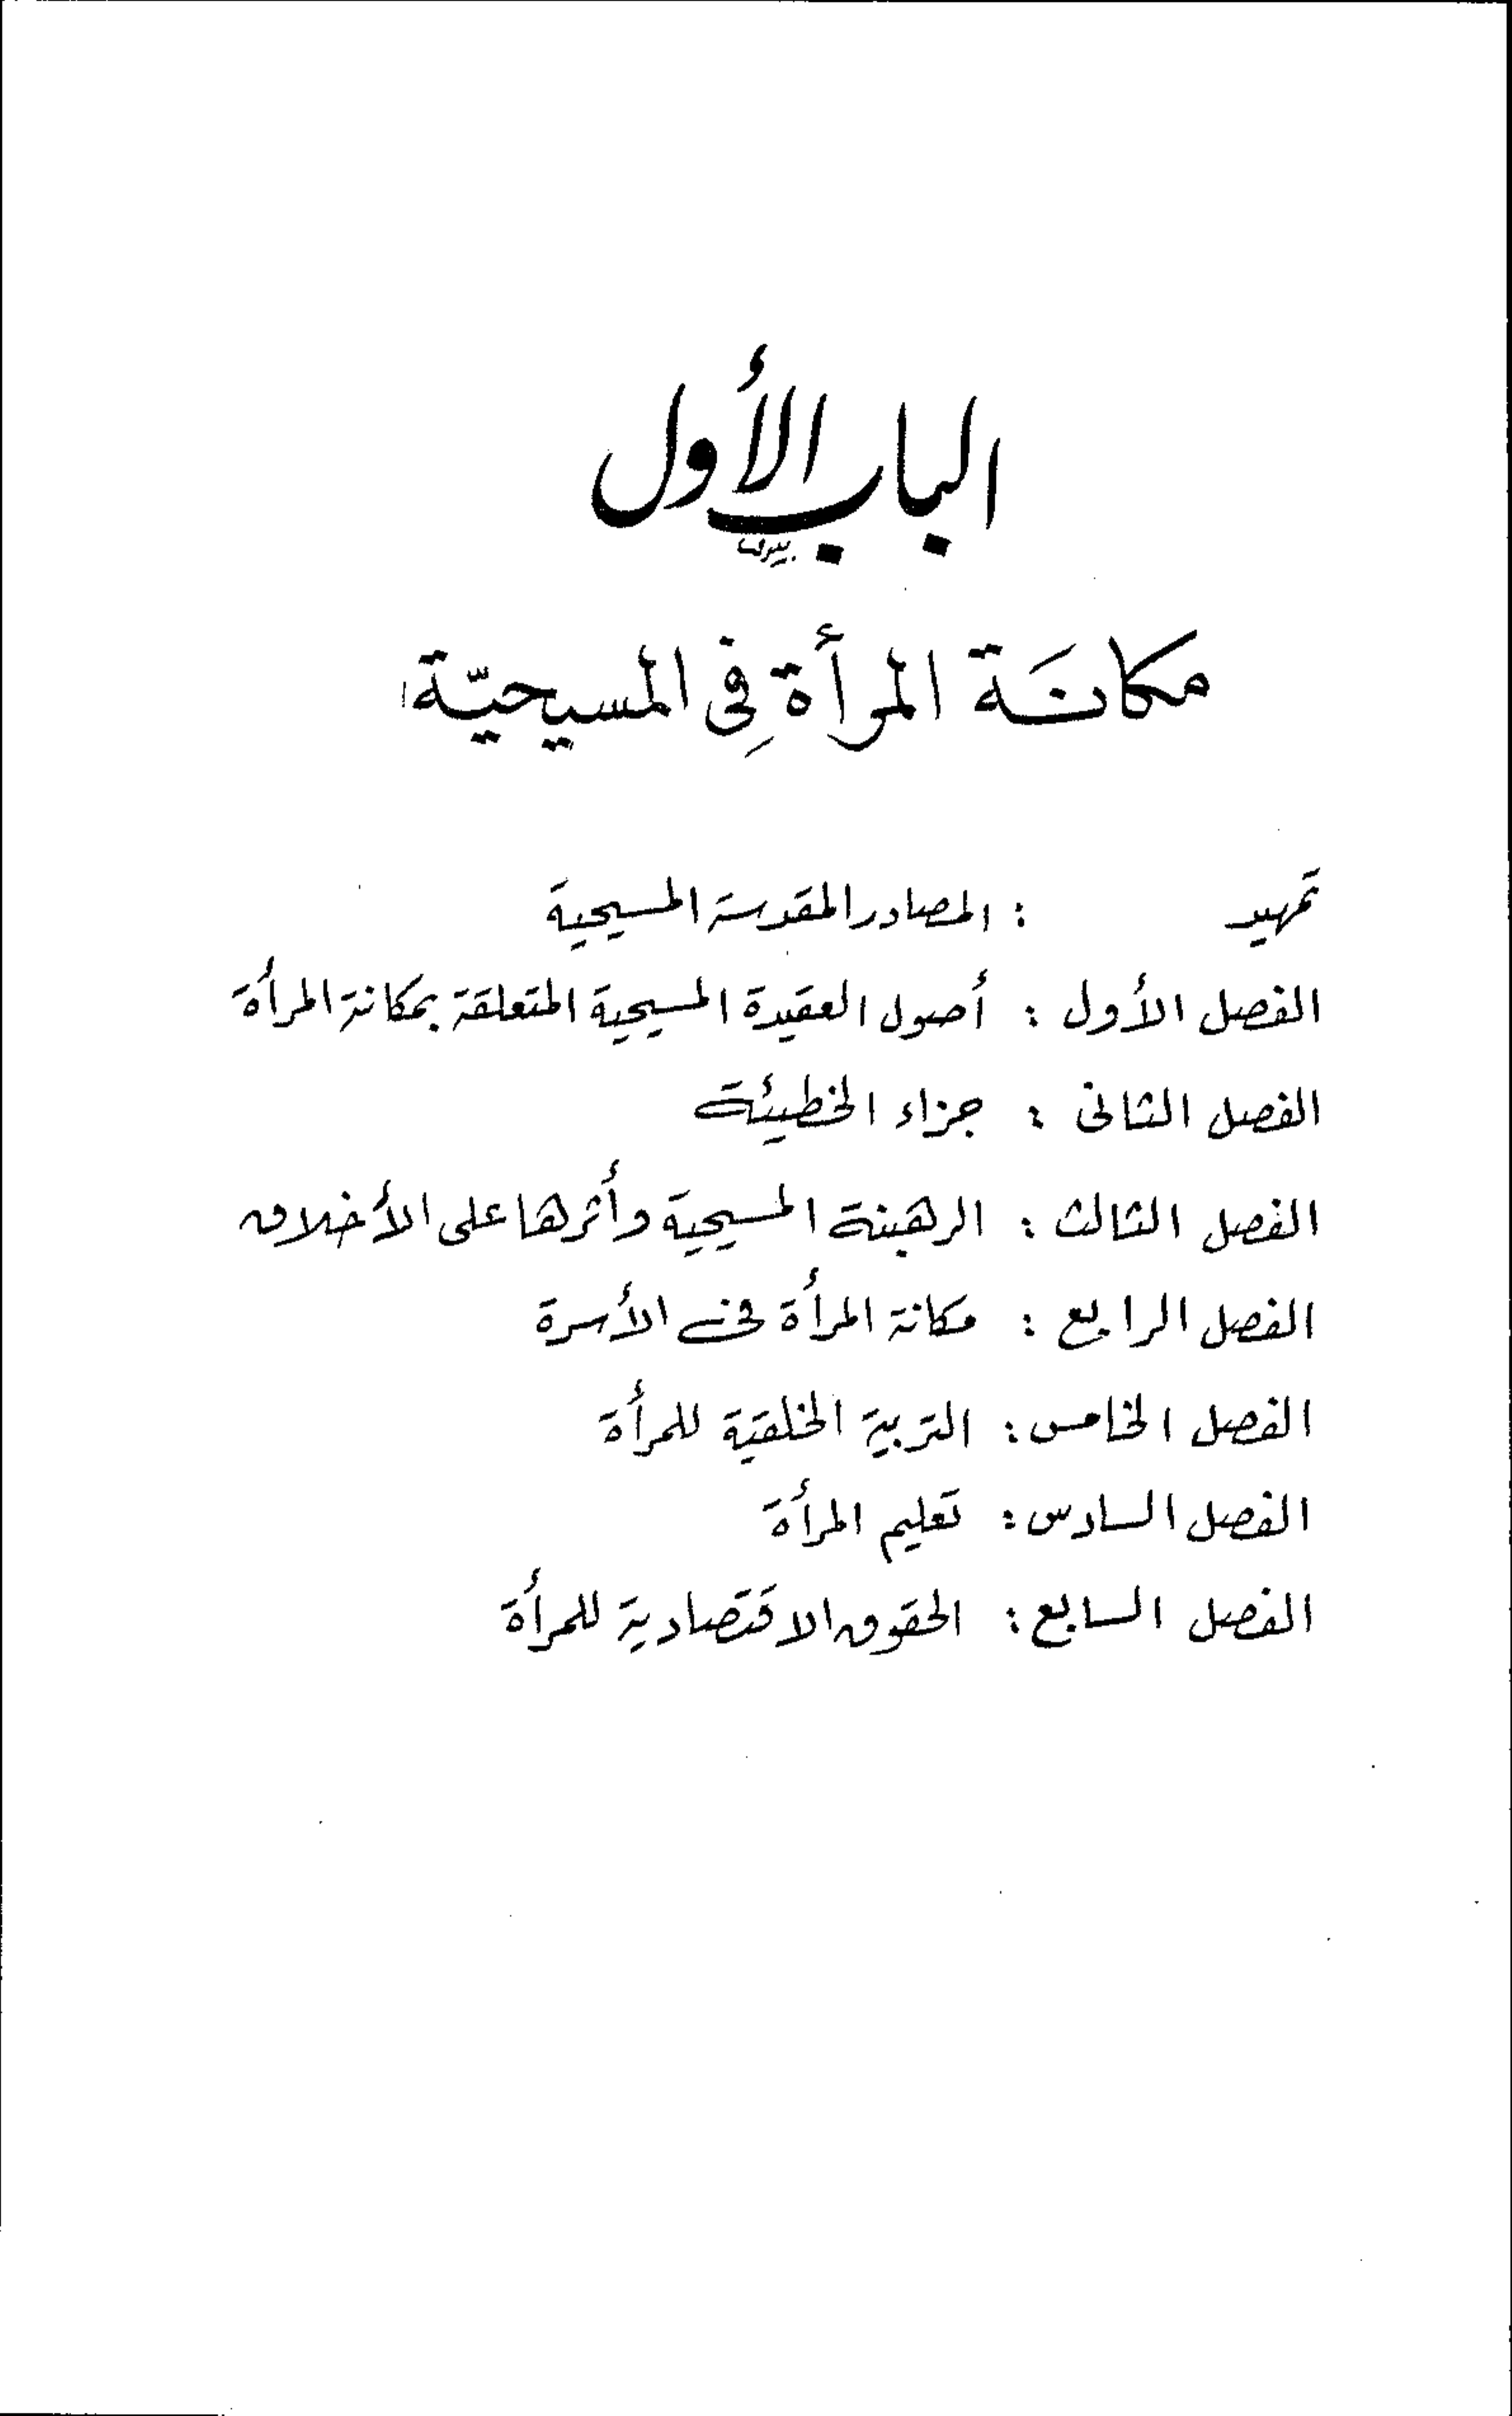 الباب الأول
مكانَة المرأة فِى المسيحيّة
تمهيد : المصادر المقدسة المسيحية
الفصل الأول : أصول العقيدة المسيحية المتعلقة بمكانة المرأة
الفصل الثانى : جزاء الخطيئة
الفصل الثالث : الرهبنة المسيحية وأثرها على الأخلاق
الفصل الرابع : مكانة المرأة فى الأسرة
الفصل الخامس : التربية الخلقية للمرأة
الفصل السادس : تعليم المرأة
الفصل السابع : الحقوق الاقتصادية للمرأة